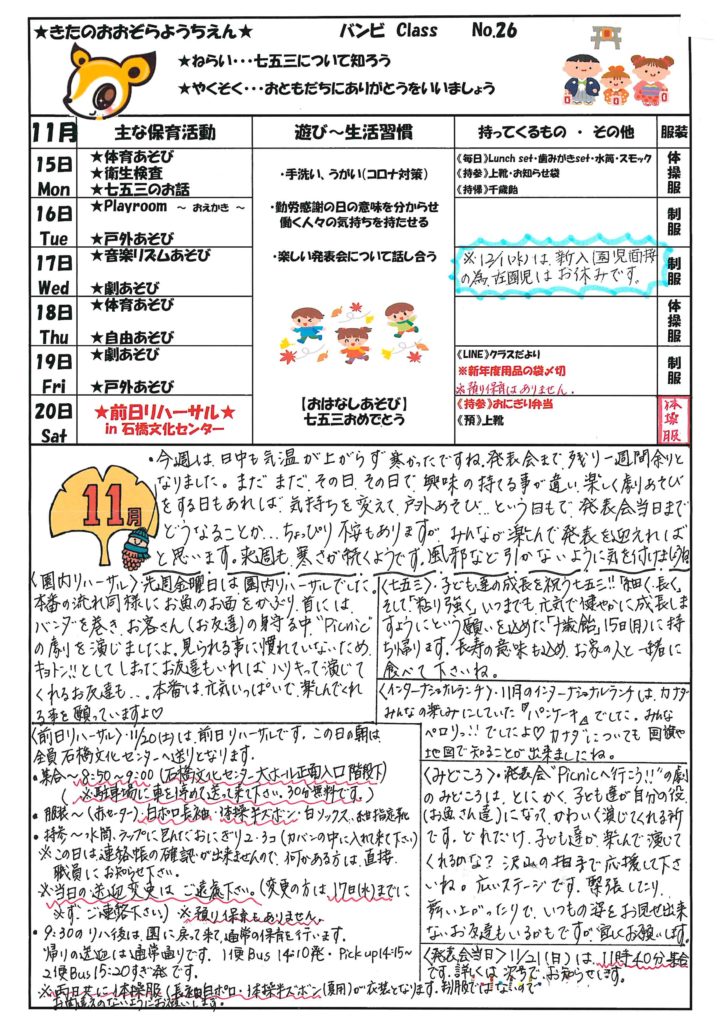 ★きたのおおぞらようちえん★ バンビ Class No.26
★ねらい・・・七五三について知ろう
★やくそく・・・おともだちにありがとうをいいましょう
11月 主な保育活動 遊び～生活習慣 持ってくるもの ・ その他 服装
15日 Mon
★体育あそび
★衛生検査
★七五三のお話
《毎日》Lunch set・歯みがきset・水筒・スモック
《持参》上靴・お知らせ袋
《持帰》千歳飴
体操服
16日 Tue
★Playroom ～ おえかき ～
★戸外あそび
制服
17日 Wed
★音楽リズムあそび
★劇あそび
※12/1(水)は、新入園児面接
の為、在園児はお休みです。
制服
18日 Thu
★体育あそび
★自由あそび
体操服
19日 Fri
★劇あそび
★戸外あそび
《LINE》クラスだより
※新年度用品の袋〆切
※預り保育はありません。
制服
20日 Sat
★前日リハーサル★
in 石橋文化センター
《持参》おにぎり弁当
《預》上靴
体操服
・手洗い、うがい(コロナ対策)
・勤労感謝の日の意味を分からせ
働く人々の気持ちを持たせる
・楽しい発表会について話し合う
【おはなしあそび】
七五三おめでとう
11月
・今週は、日中も気温が上がらず寒かったですね。発表会まで、残り一週間余りと
なりました。まだまだ、その日、その日で、興味の持てる事が違い、楽しく劇あそび
をする日もあれば、気持ちを変えて、戸外あそび…という日もで、発表会当日まで
どうなることか…ちょっぴり不安もありますが、みんなが楽しんで発表を迎えれば
と思います。来週も寒さが続くようです。風邪など引かないように気を付けましょうね
〈園内リハーサル〉先週金曜日は園内リハーサルでした。
本番の流れ同様にお魚のお面をかぶり、首には、
バンダを巻き、お客さん(お友達)の見守る中“Picnic”
の劇を演じましたよ。見られる事に慣れていないため、
キョトン!!とししまたお友達もいれば、ハリキって演じて
くれるお友達も…。本番は、元気いっぱいで、楽しんでくれ
る事を願っていますよ♡
〈七五三〉・子ども達の成長を祝う七五三!!『細く、長く』
そして“粘り強く”いつまでも元気で健やかに成長しま
すようにという願いを込めた『千歳飴』15日(月)に持
ち帰ります。長寿の意味も込め、お家の人と一緒に
食べて下さいね。
〈インターナショナルランチ〉・11月のインターナショナルランチは、カナダ・
みんなの楽しみにしていた『パンケーキ』でした。みんな
ペロリッ!!でしたよ♡カナダについても国旗や
地図で知ることが出来ましたね。
〈前日リハーサル〉・11/20(土)は、前日リハーサルです。この日の朝は
全員石橋文化センターへ送りとなります。
・集合～8:50～9:00(石橋文化センター大ホール正面入口階段下)
(※駐車場に車を停めて送って来て下さい。30分無料です。)
・服装～(赤セーター)白ポロ長袖・体操半ズボン・白ソックス・指定靴
・持参～水筒・ラップに包んだおにぎり2・3コ(カバンの中に入れて来て下さい)
※この日は連絡帳の確認が出来ませんので、何かある方は、直接
職員にお知らせ下さい。
※当日の送迎変更は、ご遠慮下さい。(変更の方は、17日(水)までに
必ず、ご連絡下さい) ※預り保育もありません。
・9:30のリハ後は、園に戻って来て通常の保育を行います。
帰りの送迎は通常通りです。1便Bus 14:10発・Pick up14:15～
2便Bus15:20すぎ発です。
※両日共に、体操服(長袖白ポロ・体操半ズボン(夏用)が衣装となります。制服ではないので
お間違えのないようにお願いします。
〈みどころ〉・発表会“Picnicへ行こう!!”の劇
のみどころは、とにかく、子ども達が自分の役
(お魚さん達)になって、かわいく演じてくれる所
です。どれだけ、子ども達が、楽しんで演じて
くれるのな?沢山の拍手で応援して下さ
いね。広いステージです。緊張したり、
舞い上がったりで、いつもの姿をお見せ出来
ないお友達もいるかもですが、宜しくお願いします。
〈発表会当日〉11/21(日)は、11時40分集合
です。詳しくは、次号で、お知らせします。